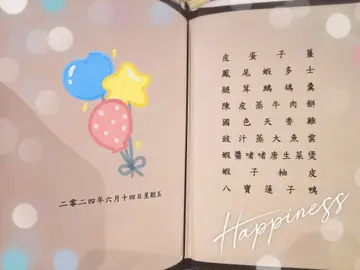 二零二四年六月十四日星期五
皮蛋子薑
鳳尾蝦多士
腿茸鷓鴣羹
陳皮蒸牛肉餅
國色天香雞
豉汁蒸大魚雲
蝦醬啫啫唐生菜煲
蝦子柚皮
八寶蓮子鴨
Happiness